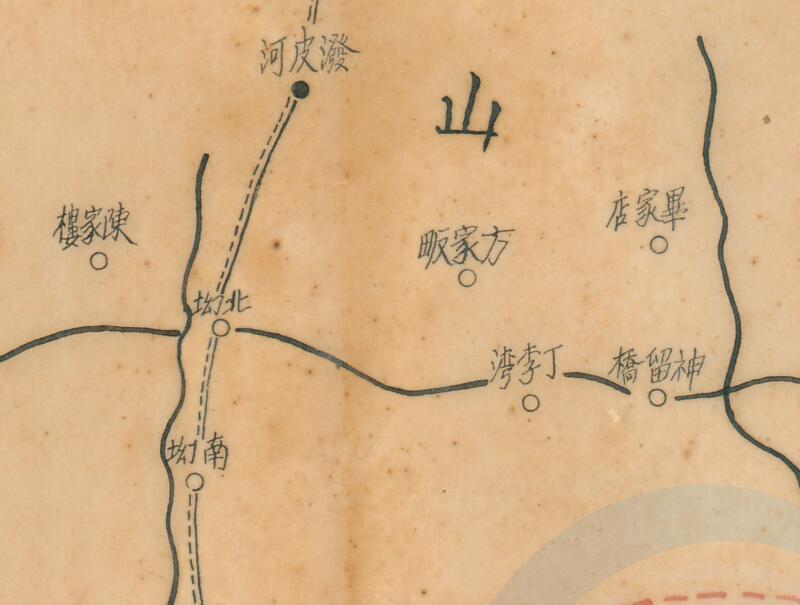 潑皮河
山
畢家店
陳家樓
方家畈
北坳
丁李湾
神留橋
南坳